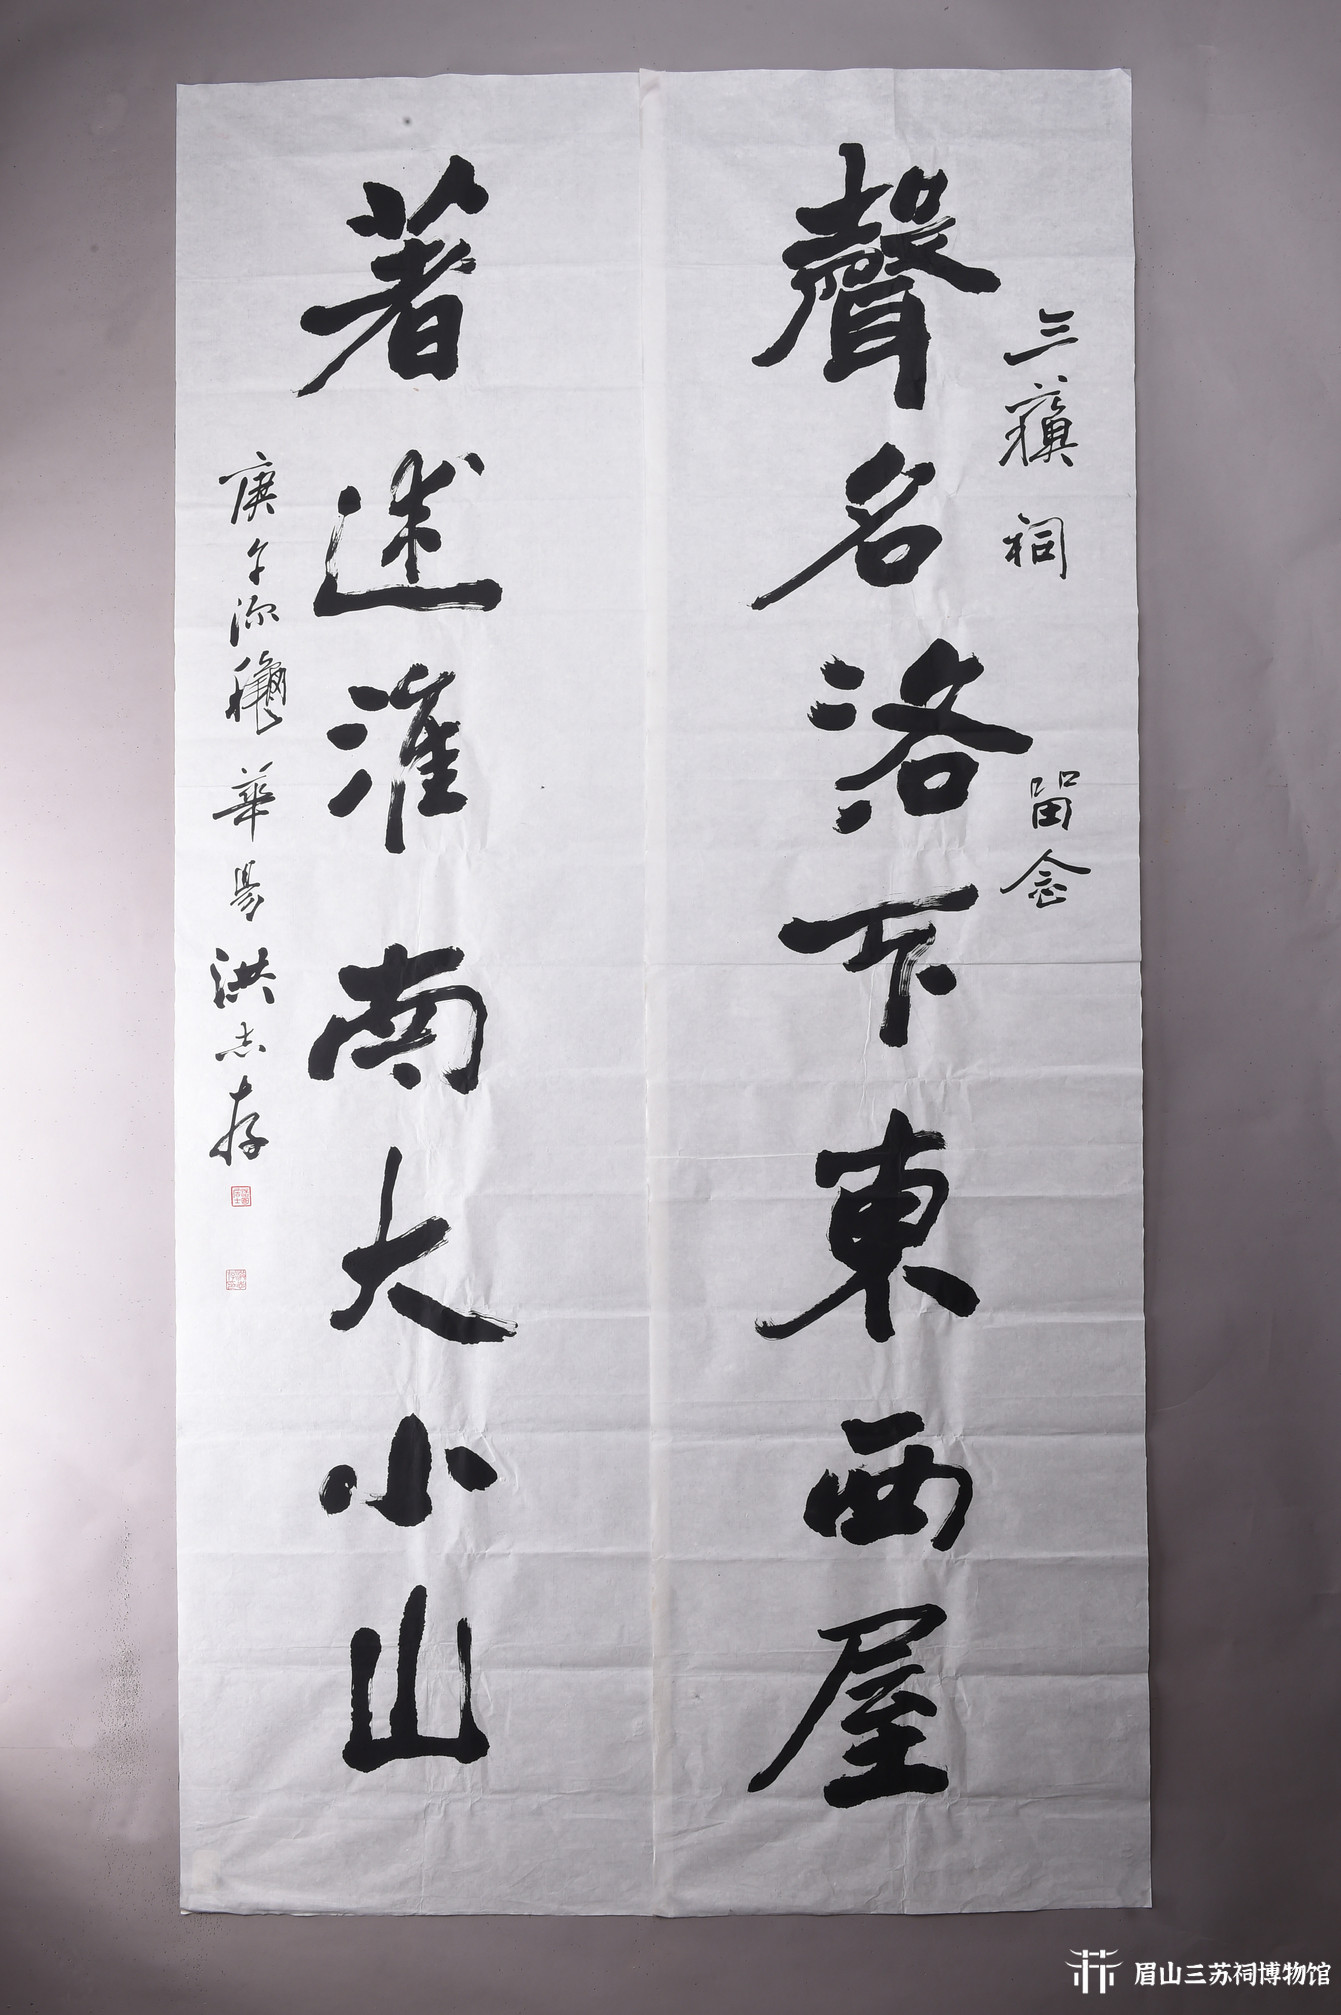 三蘓祠 留念
聲名洛下東西屋
著述淮南大小山
庚午深龝華昜洪志存
眉山三苏祠博物馆